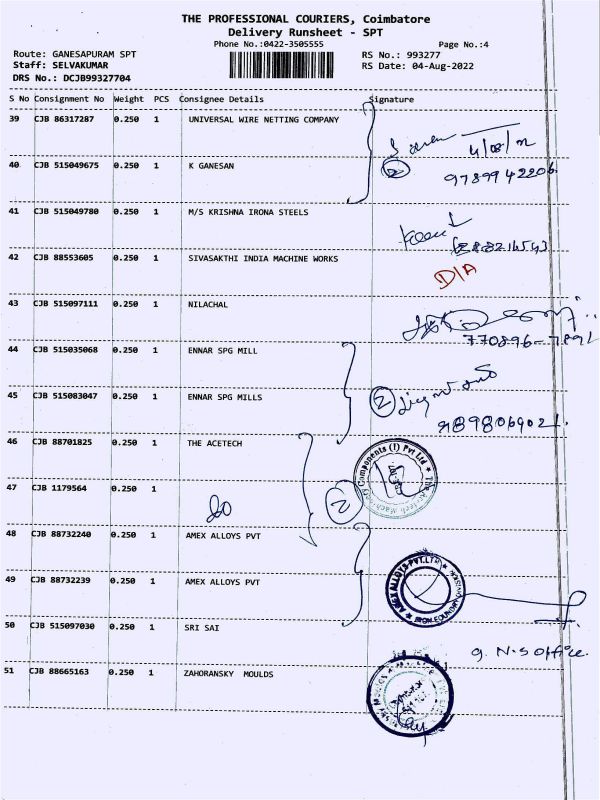 THE PROFESSIONAL COURIERS, Coimbatore
Delivery Runsheet - SPT
Phone No.:0422-3505555 Page No.:4
Route: GANESAPURAM SPT RS No.: 993277
Staff: SELVAKUMAR RS Date: 04-Aug-2022
DRS No.: DCJB99327704
S No Consignment No Weight PCS Consignee Details Signature
39 CJB 86317287 0.250 1 UNIVERSAL WIRE NETTING COMPANY
40 CJB 515049675 0.250 1 K GANESAN
② 9789942206
41 CJB 515049780 0.250 1 M/S KRISHNA IRONA STEELS
42 CJB 88553605 0.250 1 SIVASAKTHI INDIA MACHINE WORKS
D/A
43 CJB 515097111 0.250 1 NILACHAL
770896-7891
44 CJB 515035068 0.250 1 ENNAR SPG MILL
45 CJB 515083047 0.250 1 ENNAR SPG MILLS
②
46 CJB 88701825 0.250 1 THE ACETECH
47 CJB 1179564 0.250 1
do ②
48 CJB 88732240 0.250 1 AMEX ALLOYS PVT
49 CJB 88732239 0.250 1 AMEX ALLOYS PVT
AMEX ALLOYS PVT.LTD
50 CJB 515097030 0.250 1 SRI SAI
g. N.S office.
51 CJB 88665163 0.250 1 ZAHORANSKY MOULDS